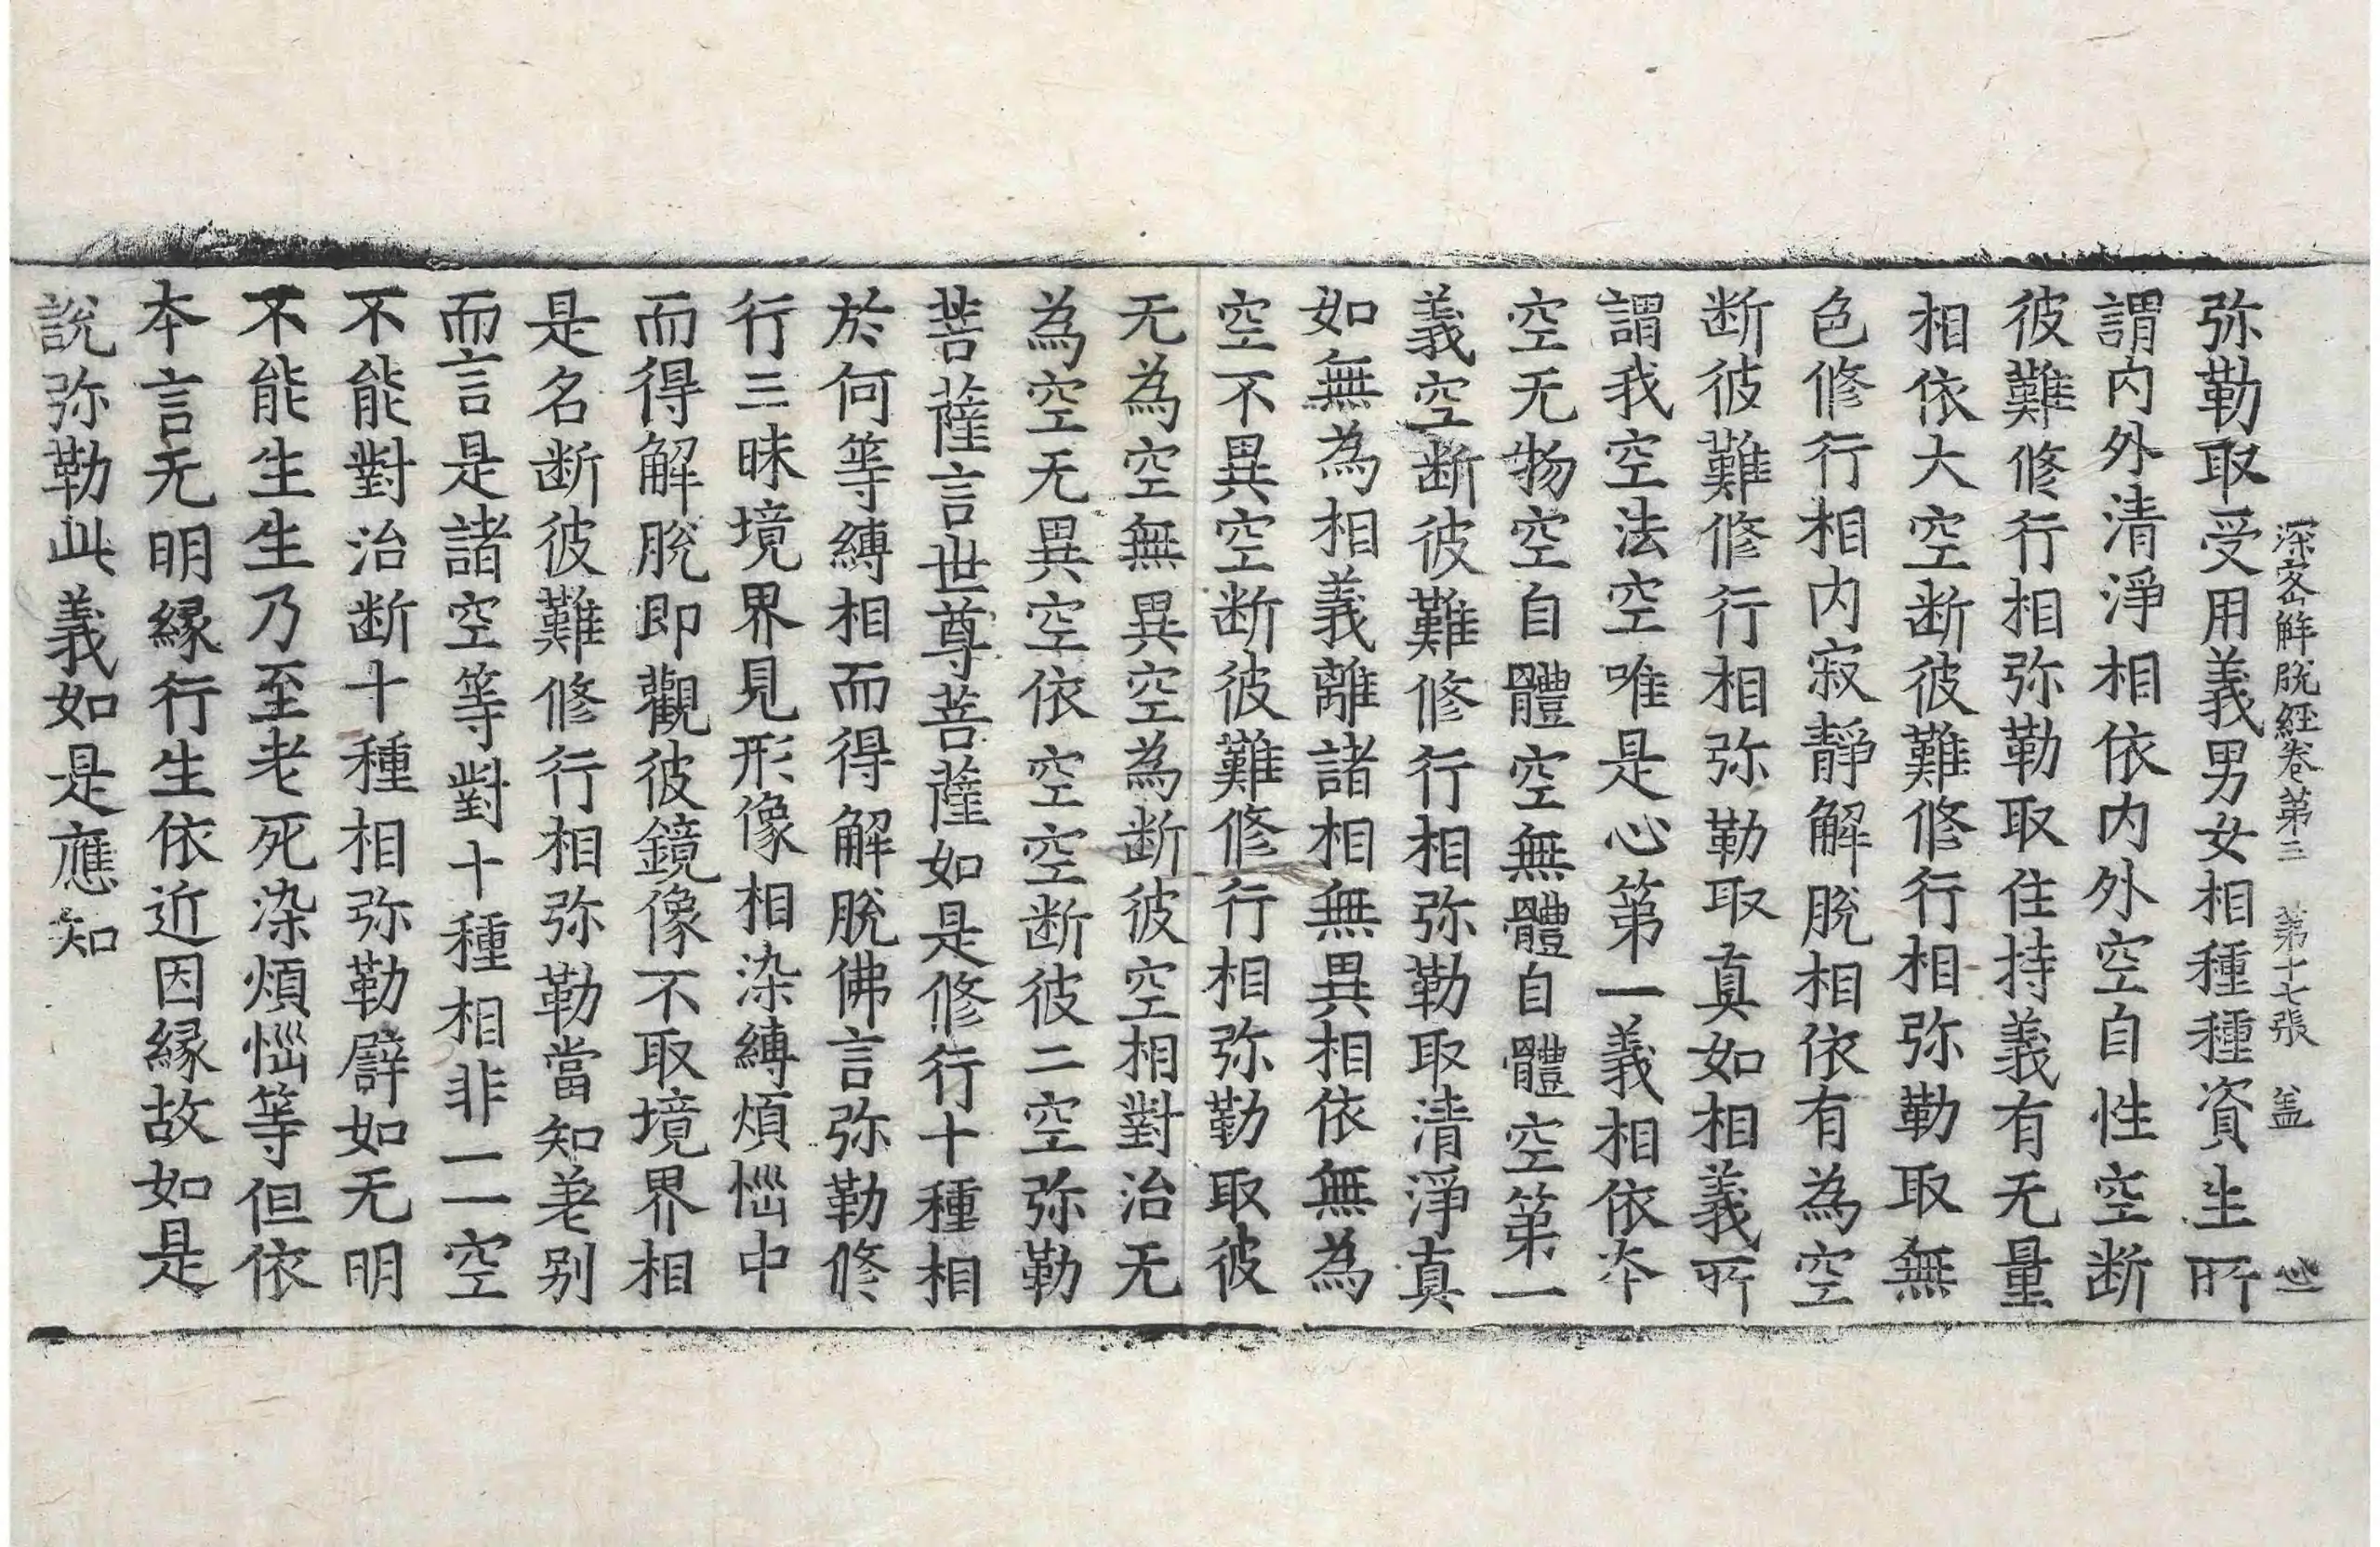 深密解脫經卷第三 第十七張 盖
弥勒取受用義男女相種種資生所
謂内外清淨相依内外空自性空断
彼難修行相弥勒取住持義有无量
相依大空断彼難修行相弥勒取無
色修行相内寂靜解脫相依有為空
断彼難修行相弥勒取真如相義所
謂我空法空唯是心第一義相依夲
空无物空自體空無體自體空第一
義空断彼難修行相弥勒取清淨真
如無為相義離諸相無異相依無為
空不異空断彼難修行相弥勒取彼
无為空無異空為断彼空相對治无
為空无異空依空空断彼二空弥勒
菩薩言世尊菩薩如是修行十種相
於何等縛相而得解脫佛言弥勒修
行三昧境界見形像相染縛煩惱中
而得解脫即觀彼鏡像不取境界相
是名断彼難修行相弥勒當知差别
而言是諸空等對十種相非一一空
不能對治断十種相弥勒譬如无明
不能生生乃至老死染煩惱等但依
夲言无明緣行生依近因緣故如是
說弥勒此義如是應知